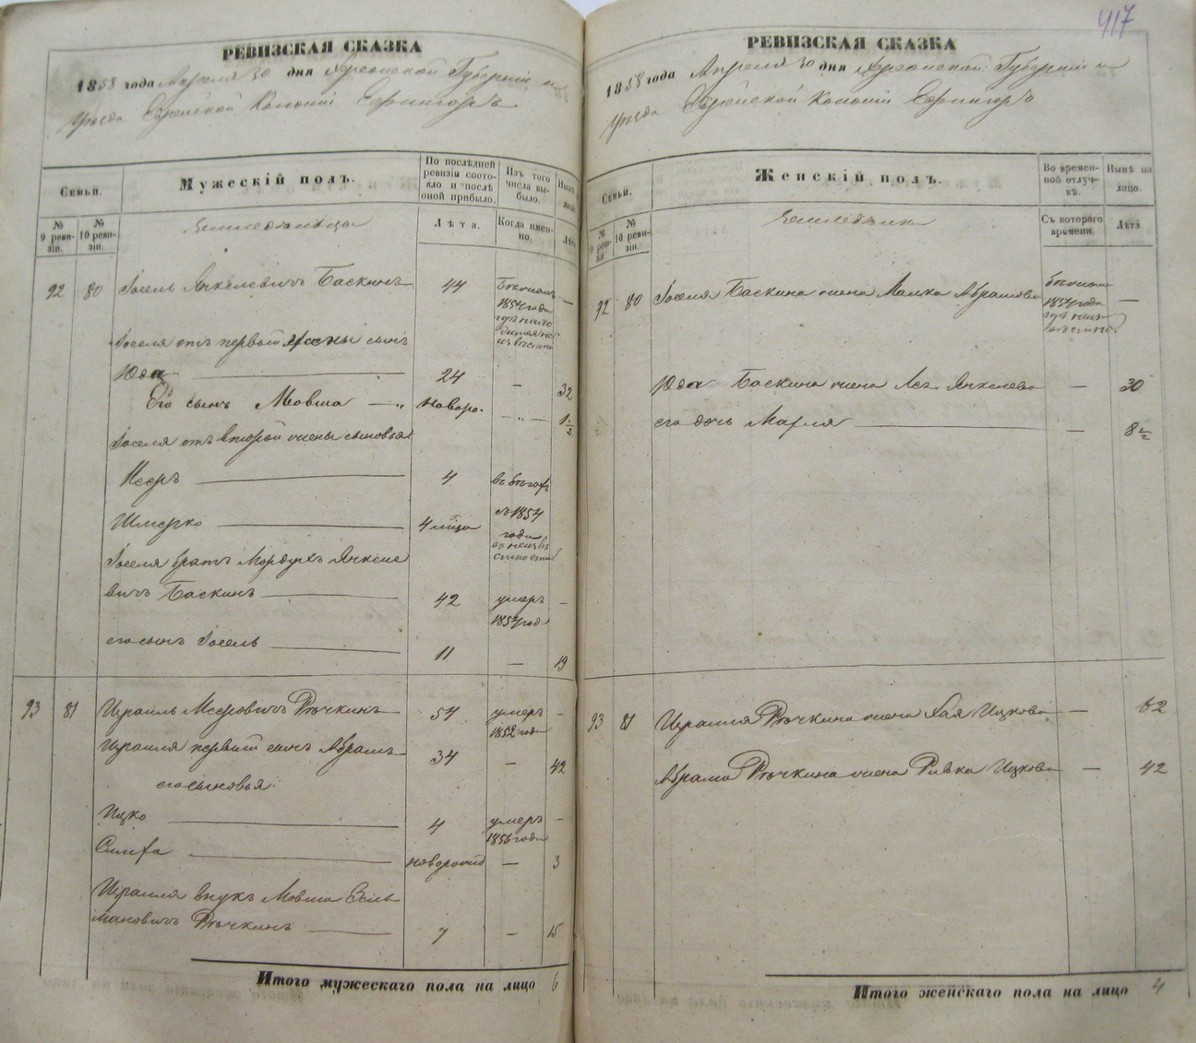 417
РЕВИЗСКАЯ СКАЗКА
1858 года Апреля 30 дня Херсонской Губернии и
Уезда Еврейской Колонии Ефингоръ
Семьи.
Мужескій полъ.
По послѣдней ревизіи состояло и послѣ оной прибыло.
Изъ того числа выбыло.
Нынѣ
№ 9 ревизіи.
№ 10 ревизіи.
Земледѣльцы
Лѣта.
Когда именно.
Лѣта
92 80 Іосель Янкелевичъ Баскинъ 44 —
1854 года
Іоселя отъ первой жены сынъ
Юда 24 — 32
Его сынъ Мовша — новоро. — 1 1/2
Іоселя отъ второй жены сыновья
Мееръ 4
Шмерко 4 мѣсяца
съ 1854
года
Іоселя братъ Мордухъ Янкеле
вичъ Баскинъ 42 умеръ —
1854 года
его сынъ Іосель 11 — 19
93 81 Израиль Мееровичъ Рѣчкинъ 54 умеръ —
1852 года
Израиля первый сынъ Абрамъ 34 — 42
его сыновья
Ицко 4 умеръ —
1856 года
Симха новорожд — 3
Израиля внукъ Мовша Зель
мановичъ Рѣчкинъ 7 — 15
Итого мужескаго пола на лицо 6
РЕВИЗСКАЯ СКАЗКА
1858 года Апреля 30 дня Херсонской Губернии и
Уезда Еврейской Колонии Ефингоръ
Семьи.
Женскій полъ.
Во временной отлучкѣ.
Нынѣ на лицо.
№ 9 ревизіи
№ 10 ревизіи.
Съ котораго времени.
Лѣта
92 80 Іоселя Баскина жена Малка Абрамова —
1854 года
Юда Баскина жена Лея Янкелева — 30
его дочь Марля — 8 1/2
93 81 Израиля Рѣчкина жена Хая Ицкова — 62
Абрама Рѣчкина жена Ривка Ицкова — 42
Итого женскаго пола на лицо 4